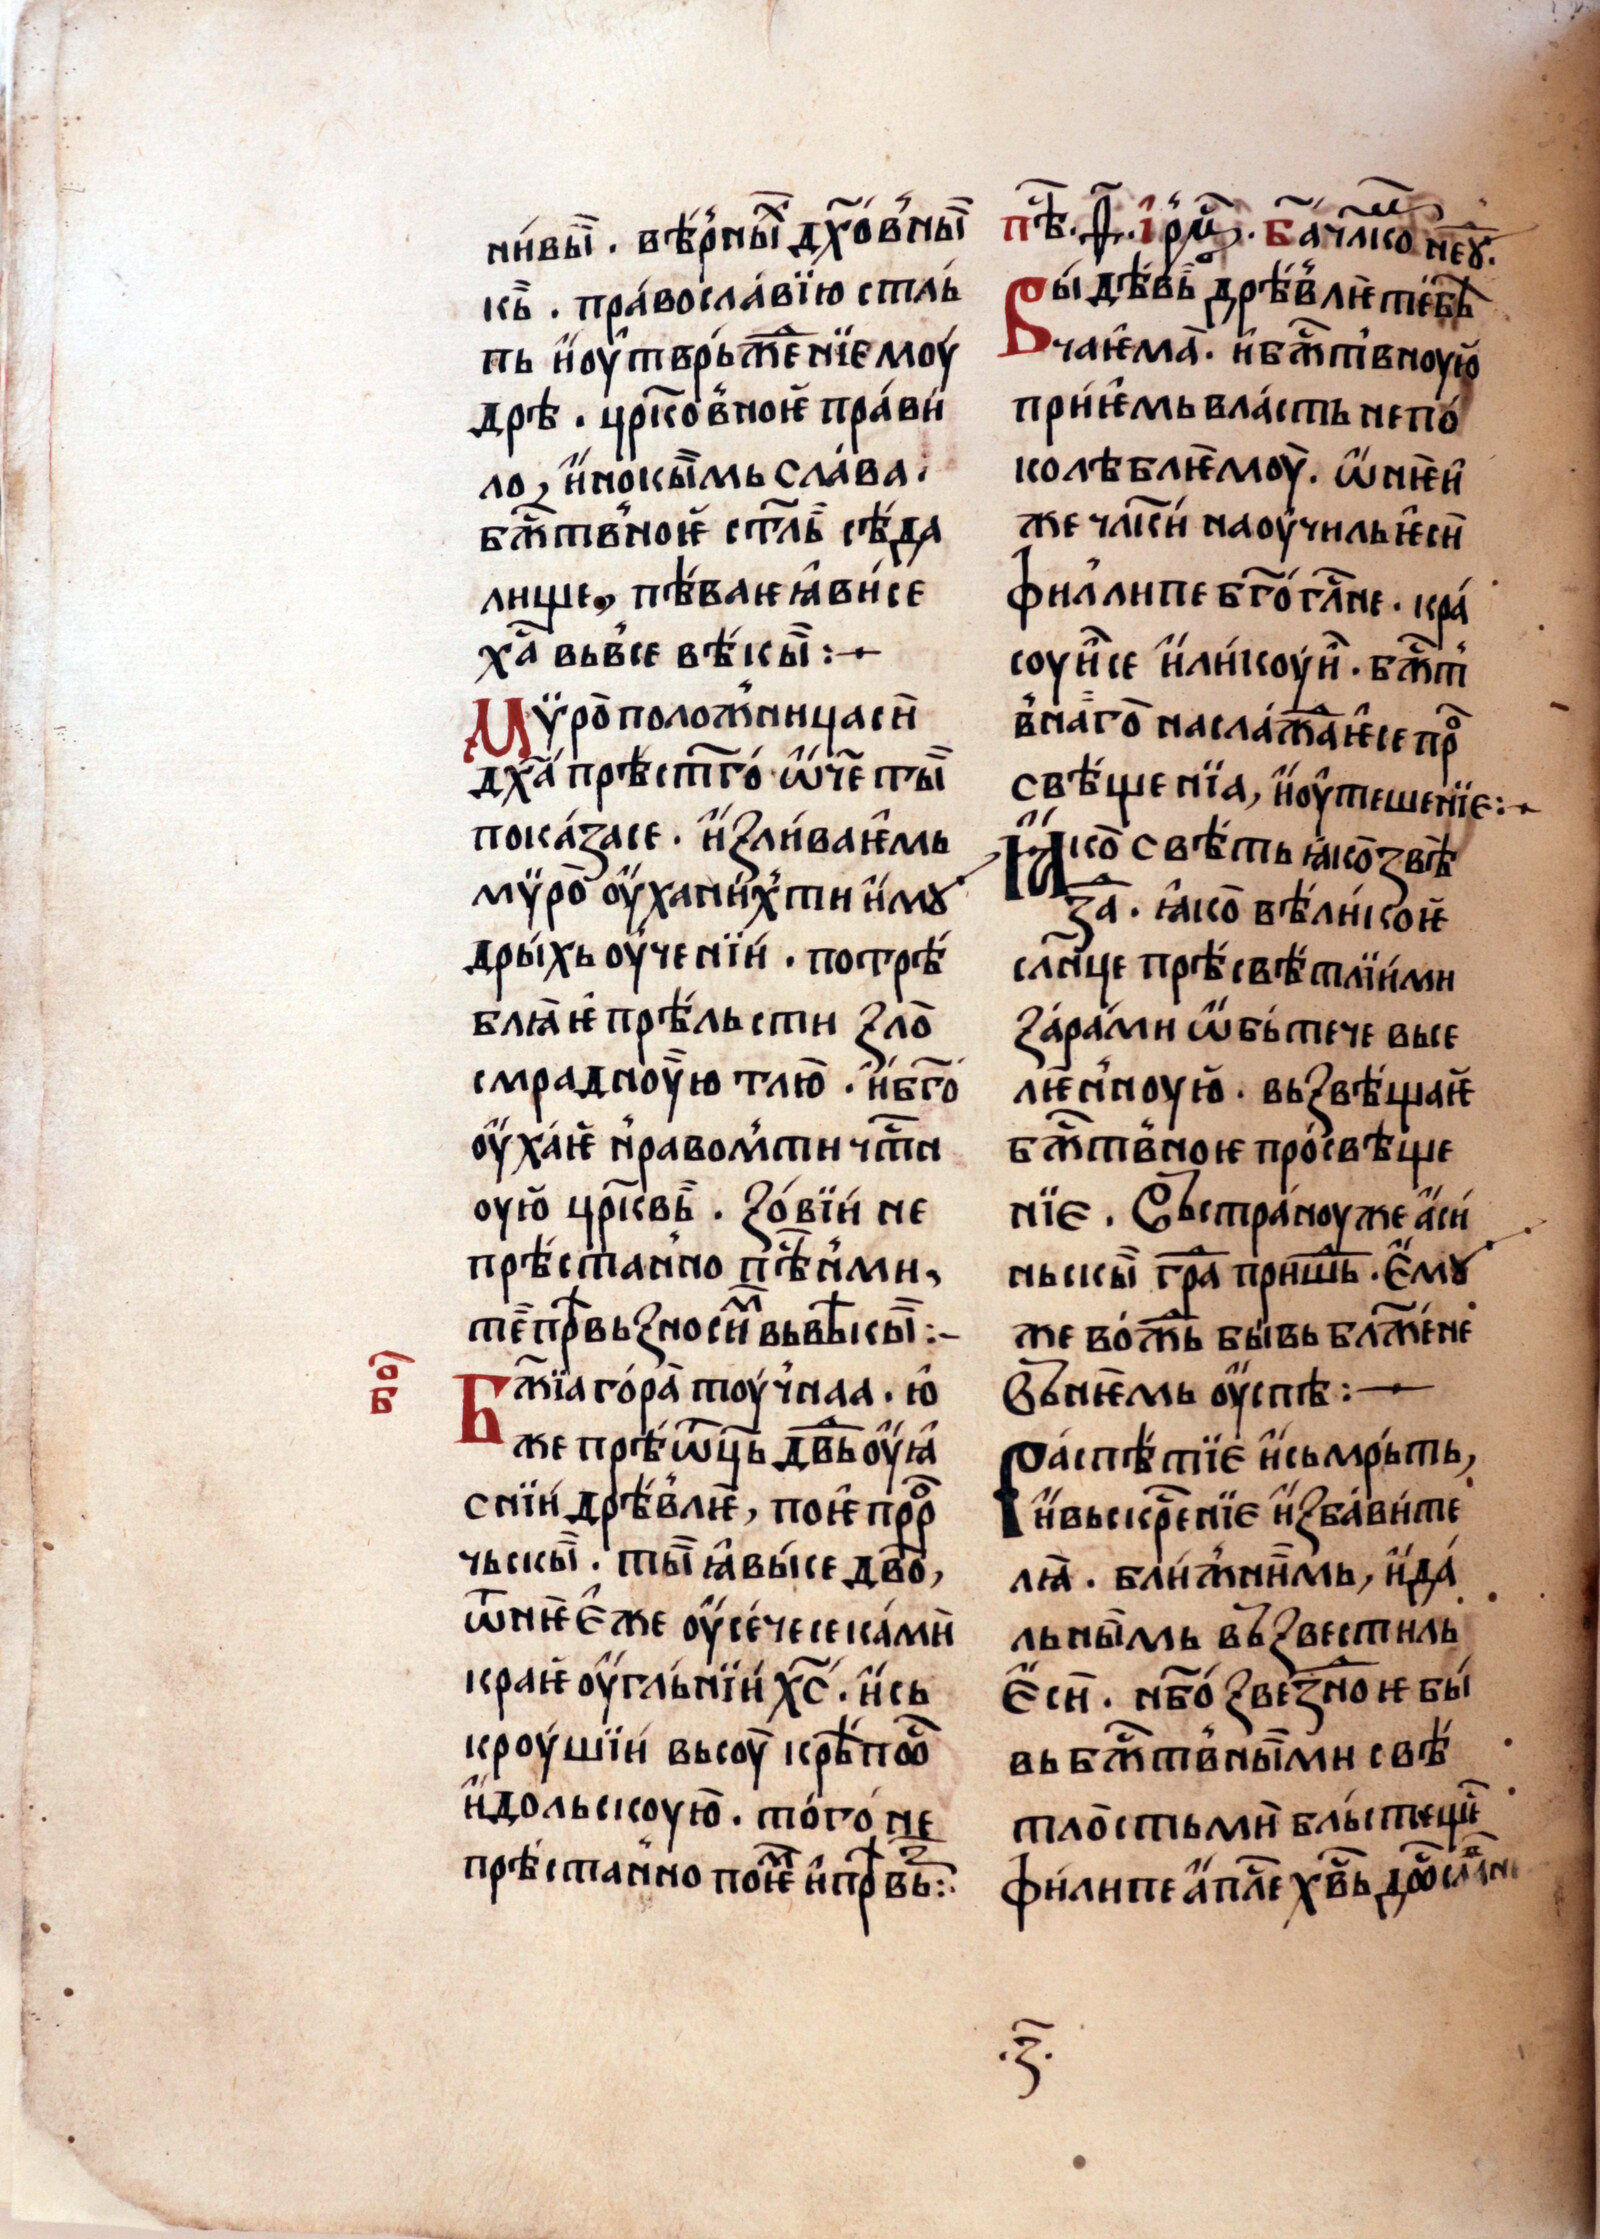 ни́вы̏ . вѣ́р̾ны̏ дх҃о́в̾ны̏
кь̏ . пра́вославїю стль́
пь и҆оу҆твр҄ьж҃енїе моу́
дрѣ . цр҃ко́в̾ноѥ пра́ви
ло, и҆нокы̏мь сла́ва .
бж҃тв̾ноѥ ст҃ль̏ сѣ́да
лище, пѣ́ваѥ ꙗ҆ви́се
ха҃ вьв̾се вѣ́кы̏ :~
Мѵ̈ро̑поло́ж̾ницаси̏
дх҃а прѣст҃го́ ѡ҆ч҃е ты̏
пока́засе . и҆зли́ваѥмь
мѵ̈ро̑ оу҆хани́х̾ти и҆моу
дры́хь оу҆ченїи́ . потрѣ́
блꙗ̑ѥ҆ прѣ́льсти ꙁло̑
смрадноу̏ю тлю̑ . и҆бг҃о́
оу҆ха́ѥ н̾раво́м̾ти чт҃н
оую̑ цр҃квь̏ . ꙁо́вїи́ не
прѣста́н̾но пѣ҃н̾ми,
те̑прѣ҃вьꙁноси̏м вьвѣ̏кы̏ :~
бо҃
Бж҃їа го́ра̑ тоу́ч̾наа . ю҆
же прѣ́ѿць дв҃ь оу҆ꙗ҆
снїи́ дрѣ́в̾лѥ, поѥ҆ прⷪ҇р
чьскы̏ . ты̏ ꙗ҆вы́се дв҃о,
ѿнѥ̑ є҆же оу҆се́чесе ка́ми̏
краѥ оу҆гль́нїи́ хс҃ . и҆сь
кроу́шїи́ высоу̏ крѣ́пѡⷭ҇
и҆дольскоую̑ . то́го́ не
прѣста́н̾но поѥⷨ и҆прѣ҃вь̏ :~
пѣ҃ . д҃ . і҆рмⷭ҇ . б҃а чл҃ко̑мⷨ неоу̏ .
Бы́ дѣ́вь̏ дрѣ́в̾лѥ тебѣ̏
чаѥма̏ . и҆бж҃тв̾ноую̑
при́ѥмь вла́сть непо́
колѣблѥмоу̏ . ѡ҆нѥи҆
же чл҃ки́ наоу́чиль ѥ҆си̏
фил́липе бг҃о́гл҃не . кра́
соу́и̏се и҆ли́коу́и̏ . бж҃т
в̾на̏го̑ насла́жа҃ѥ҆се прⷪ҇
свѣ́щенїа, и҆оу҆тешенїе :~
Ꙗ҆ко̑ свѣ́ть ꙗ҆ко̑ꙁвѣ́
ꙁа̑ . ꙗ҆ко̑ вѣ́ли́коѥ
сл҃нце прѣсвѣтлїи́ми
ꙁа́ра́ми ѡ҆бь́тече высе
лѥн̾ноую̑ . вьꙁвѣ́щаѥ
бж҃тв̾ноѥ про́свѣще
нїе . Съ̏стра́ноуже а҆сі́и
ньскы̏ гра҃ пришь҃ . є҆моу
же во́жь҃ бывь бл҃же́не
Въ̏нѥмь оу҆спѣ :~
Распѣ́тїе и҆сьмрь́ть,
и҆вьскрⷭ҇енїе и҆ꙁба́ви́те
лꙗ̑ . бли́ж̾ни̏мь, и҆да́
льны̏мь въ̏ꙁвестиль
є҆си̏ . нб҃о́ ꙁвеꙁ҃ноѥ бы́
вь бж҃тв̾ны̏ми свѣ́
тло̑стьми̏ бль́стеще̏
фи́липе а҆пл҃е хв҃ь дѡⷭ҇сла́вни
. ꙁ҃ .